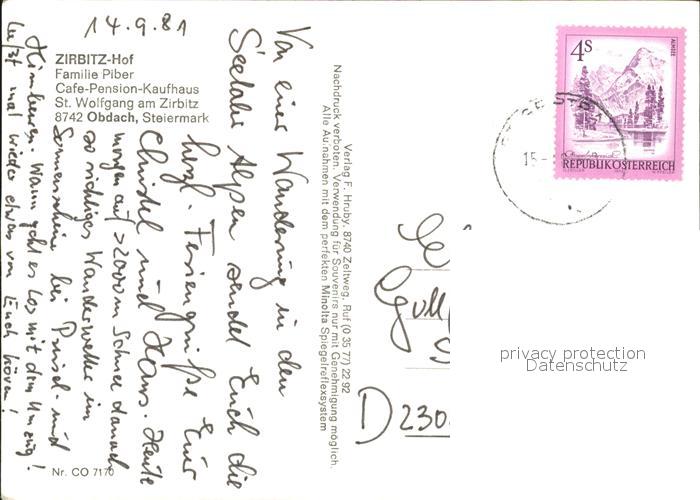 14.9.81
ZIRBITZ-Hof
Familie Piber
Cafe-Pension-Kaufhaus
St. Wolfgang am Zirbitz
8742 Obdach, Steiermark
Von einer Wanderung in den
Seetaler Alpen sendet Euch die
herzl. Feriengrüße Eure
Christel und Hans. Heute
morgen auf >2000m Schnee danach
so richtiges Wanderwetter im
Sonnenschein bei und
Wann geht es los mit dem Umzug!
Laßt mal wieder etwas von Euch hören!
Nr. CO 7170
Verlag F. Hruby, 8740 Zeltweg, Ruf (0 35 77) 22 92
Nachdruck verboten. Verwendung für Souvenirs nur mit Genehmigung möglich.
Alle Aufnahmen mit dem perfekten Minolta Spiegelreflexsystem
4s
ALMSEE
REPUBLIK ÖSTERREICH
15-
D 230
privacy protection
Datenschutz